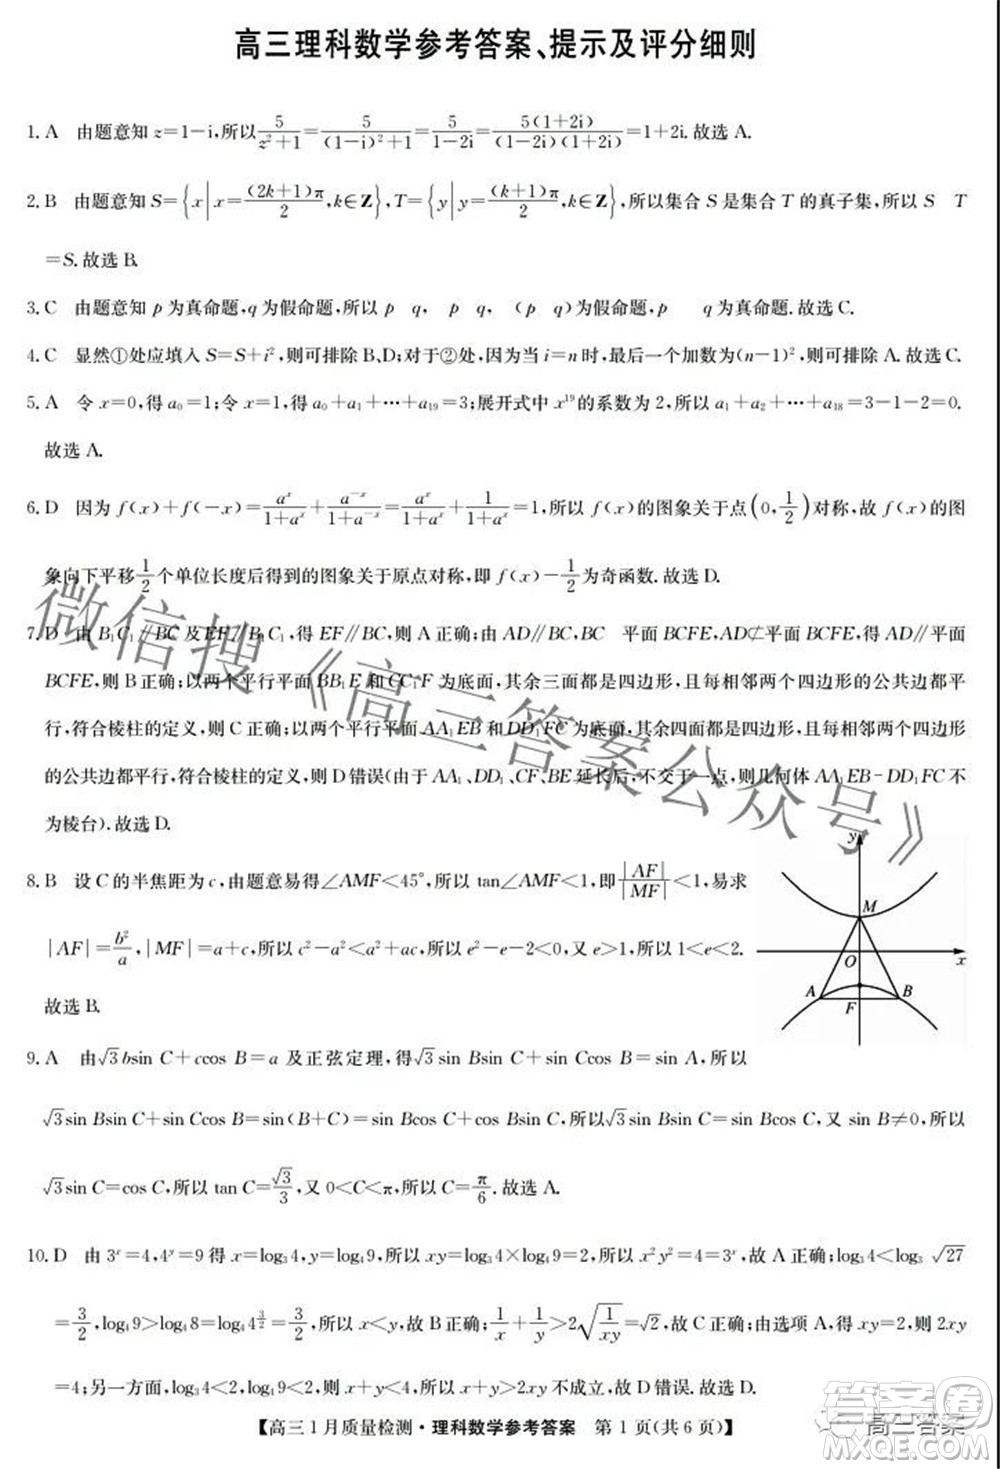 高三理科数学参考答案、提示及评分细则
1. A 由题意知 z=1-i,所以 5/(z²+1)=5/((1-i)²+1)=5/(1-2i)=5(1+2i)/((1-2i)(1+2i))=1+2i. 故选 A.
2. B 由题意知 S={x|x=(2k+1)π/2,k∈Z},T={y|y=(k+1)π/2,k∈Z},所以集合 S 是集合 T 的真子集,所以 S T
=S. 故选 B.
3. C 由题意知 p 为真命题,q 为假命题,所以 p q, p q, (p q)为假命题, p q 为真命题. 故选 C.
4. C 显然①处应填入 S=S+i²,则可排除 B、D;对于②处,因为当 i=n 时,最后一个加数为(n-1)²,则可排除 A. 故选 C.
5. A 令 x=0,得 a₀=1;令 x=1,得 a₀+a₁+⋯+a₁₉=3;展开式中 x¹⁹ 的系数为 2,所以 a₁+a₂+⋯+a₁₈=3-1-2=0.
故选 A.
6. D 因为 f(x)+f(-x)=aˣ/(1+aˣ)+a⁻ˣ/(1+a⁻ˣ)=aˣ/(1+aˣ)+1/(1+aˣ)=1,所以 f(x)的图象关于点(0,1/2)对称,故 f(x)的图
象向下平移1/2个单位长度后得到的图象关于原点对称,即 f(x)-1/2为奇函数. 故选 D.
7. D 由 B₁C₁∥BC 及 EF∥B₁C₁,得 EF∥BC,则 A 正确;由 AD∥BC,BC 平面 BCFE,AD⊄平面 BCFE,得 AD∥平面
BCFE,则 B 正确;以两个平行平面 BB₁E 和 CC₁F 为底面,其余三面都是四边形,且每相邻两个四边形的公共边都平
行,符合棱柱的定义,则 C 正确;以两个平行平面 AA₁EB 和 DD₁FC 为底面,其余四面都是四边形,且每相邻两个四边形
的公共边都平行,符合棱柱的定义,则 D 错误(由于 AA₁、DD₁、CF、BE 延长后,不交于一点,则几何体 AA₁EB-DD₁FC 不
为棱台). 故选 D.
8. B 设 C 的半焦距为 c,由题意易得∠AMF<45°,所以 tan∠AMF<1,即|AF|/|MF|<1,易求
|AF|=b²/a,|MF|=a+c,所以 c²-a²<a²+ac,所以 e²-e-2<0,又 e>1,所以 1<e<2.
故选 B.
y
M
O
x
A
F
B
9. A 由√3bsin C+ccos B=a 及正弦定理,得√3sin Bsin C+sin Ccos B=sin A,所以
√3sin Bsin C+sin Ccos B=sin(B+C)=sin Bcos C+sin Ccos B,所以√3sin Bsin C=sin Bcos C,又 sin B≠0,所以
√3sin C=cos C,所以 tan C=√3/3,又 0<C<π,所以 C=π/6. 故选 A.
10. D 由 3ˣ=4,4ʸ=9 得 x=log₃4,y=log₄9,所以 xy=log₃4×log₄9=2,所以 x²y²=4=3ˣ,故 A 正确;log₃4<log₃ √27
=3/2,log₄9>log₄8=log₄4^(3/2)=3/2,所以 x<y,故 B 正确;1/x+1/y>2√(1/xy)=√2,故 C 正确;由选项 A,得 xy=2,则 2xy
=4;另一方面,log₃4<2,log₄9<2,则 x+y<4,所以 x+y>2xy 不成立,故 D 错误. 故选 D.
【高三 1 月质量检测·理科数学参考答案 第 1 页(共 6 页)】
微信搜《高三答案公众号》
高三答案